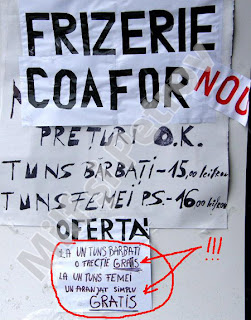 FRIZERIE
COAFOR NOU
PRETURI O.K.
TUNS BĂRBAȚI-15,00 lei/ron
TUNS FEMEI P.S.-16,00 lei/ron
OFERTA
LA UN TUNS BĂRBATI
O TRECȚIE GRATIS
LA UN TUNS FEMEI
UN ARANJAT SIMPLU
GRATIS
!!!